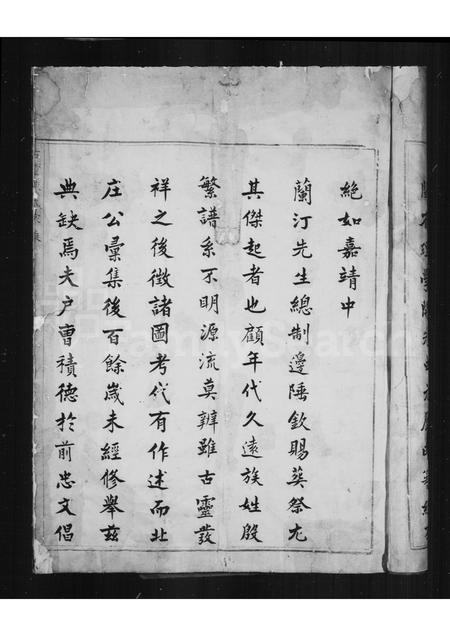 絶如嘉靖中
蘭汀先生總制邊陲欽賜葵祭尤
其傑起者也顧年代久遠族姓殷
繁譜系不明源流莫辨雖古靈發
祥之後徴諸圖考代有作述而北
庄公彚集後百餘歲未經修舉茲
典缺焉夫户曹積德於前忠文倡
FamilySearch